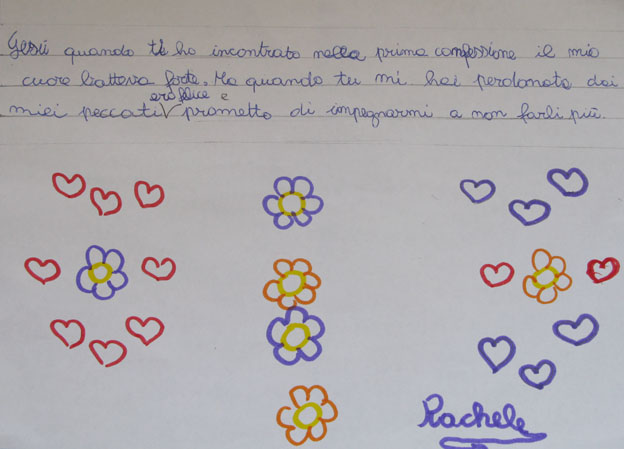 Gesù quando ti ho incontrato nella prima confessione il mio
cuore batteva forte. Ma quando tu mi hai perdonato dai
ero felice e
miei peccati prometto di impegnarmi a non farli più.
Rachele